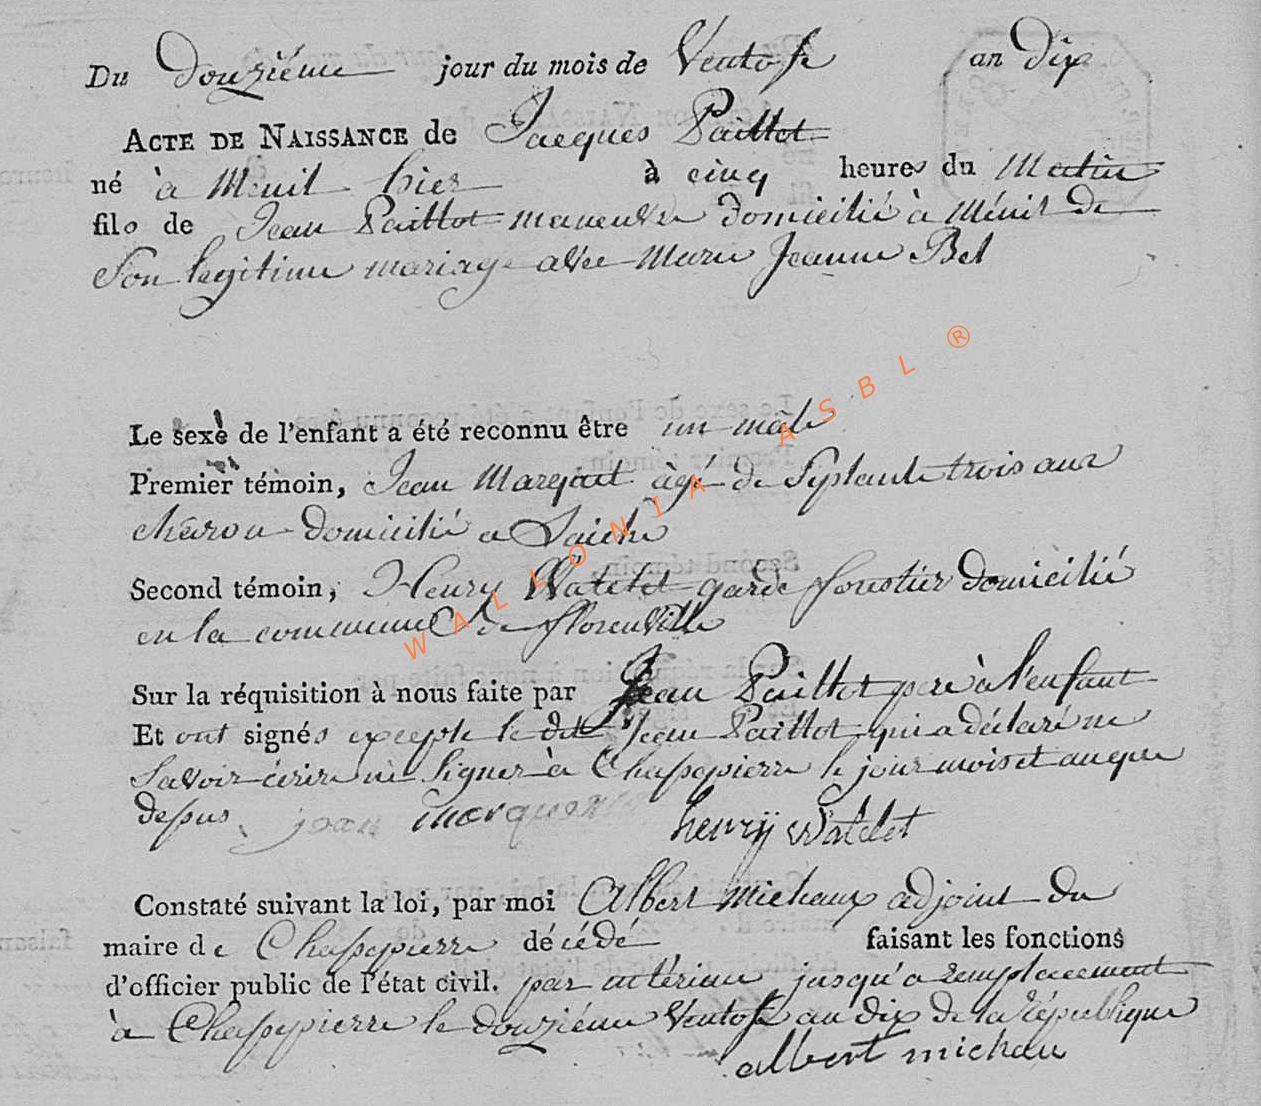 Du douziéme jour du mois de Ventose an dix
ACTE DE NAISSANCE de Jacques Paillot
né à Menil hier à cinq heures du Matin
fils de Jean Paillot maneuvre domicilié à Ménil de
Son legitime mariage avec Marie Jeanne Bel
Le sexe de l'enfant a été reconnu être un male
Premier témoin, Jean Marqant àgé de Septante trois ans
charon domicilié a Laiche
Second témoin, Henry Watelet garde forestier domicilié
en la commune de florenville
Sur la réquisition à nous faite par Jean Paillot pere à l'enfant
Et ont signés excepte le dit Jean Paillot qui a déclaré ne
Savoir écrire ni Signer à Chassepierre le jour mois et an que
dessus. jean marquant henrÿ Watelet
Constaté suivant la loi, par moi Albert michaux adjoint du
maire de Chassepierre décédé faisant les fonctions
d'officier public de l'état civil. par intérim jusqu'a remplacement
à Chassepierre le douziéme Ventose an dix de la république
albert michau
WALLONIA ASBL ®